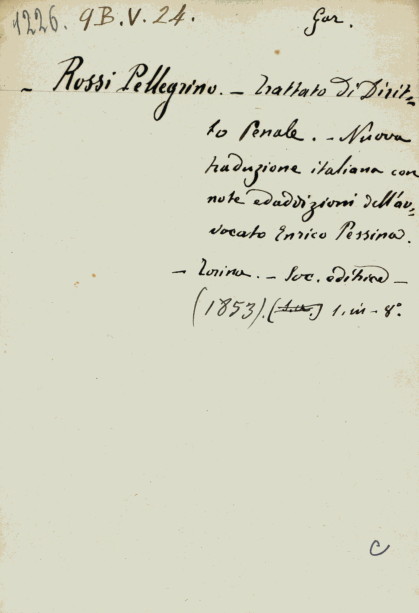 1226. 9B.V.24. Gar.
- Rossi Pellegrino. - Trattato di Dirit-
to Penale. - Nuova
traduzione italiana con
note ed addizioni dell'av-
vocato Enrico Pessina.
- Torino. - Soc. editrice -
(1853). 1. in - 8°.
C